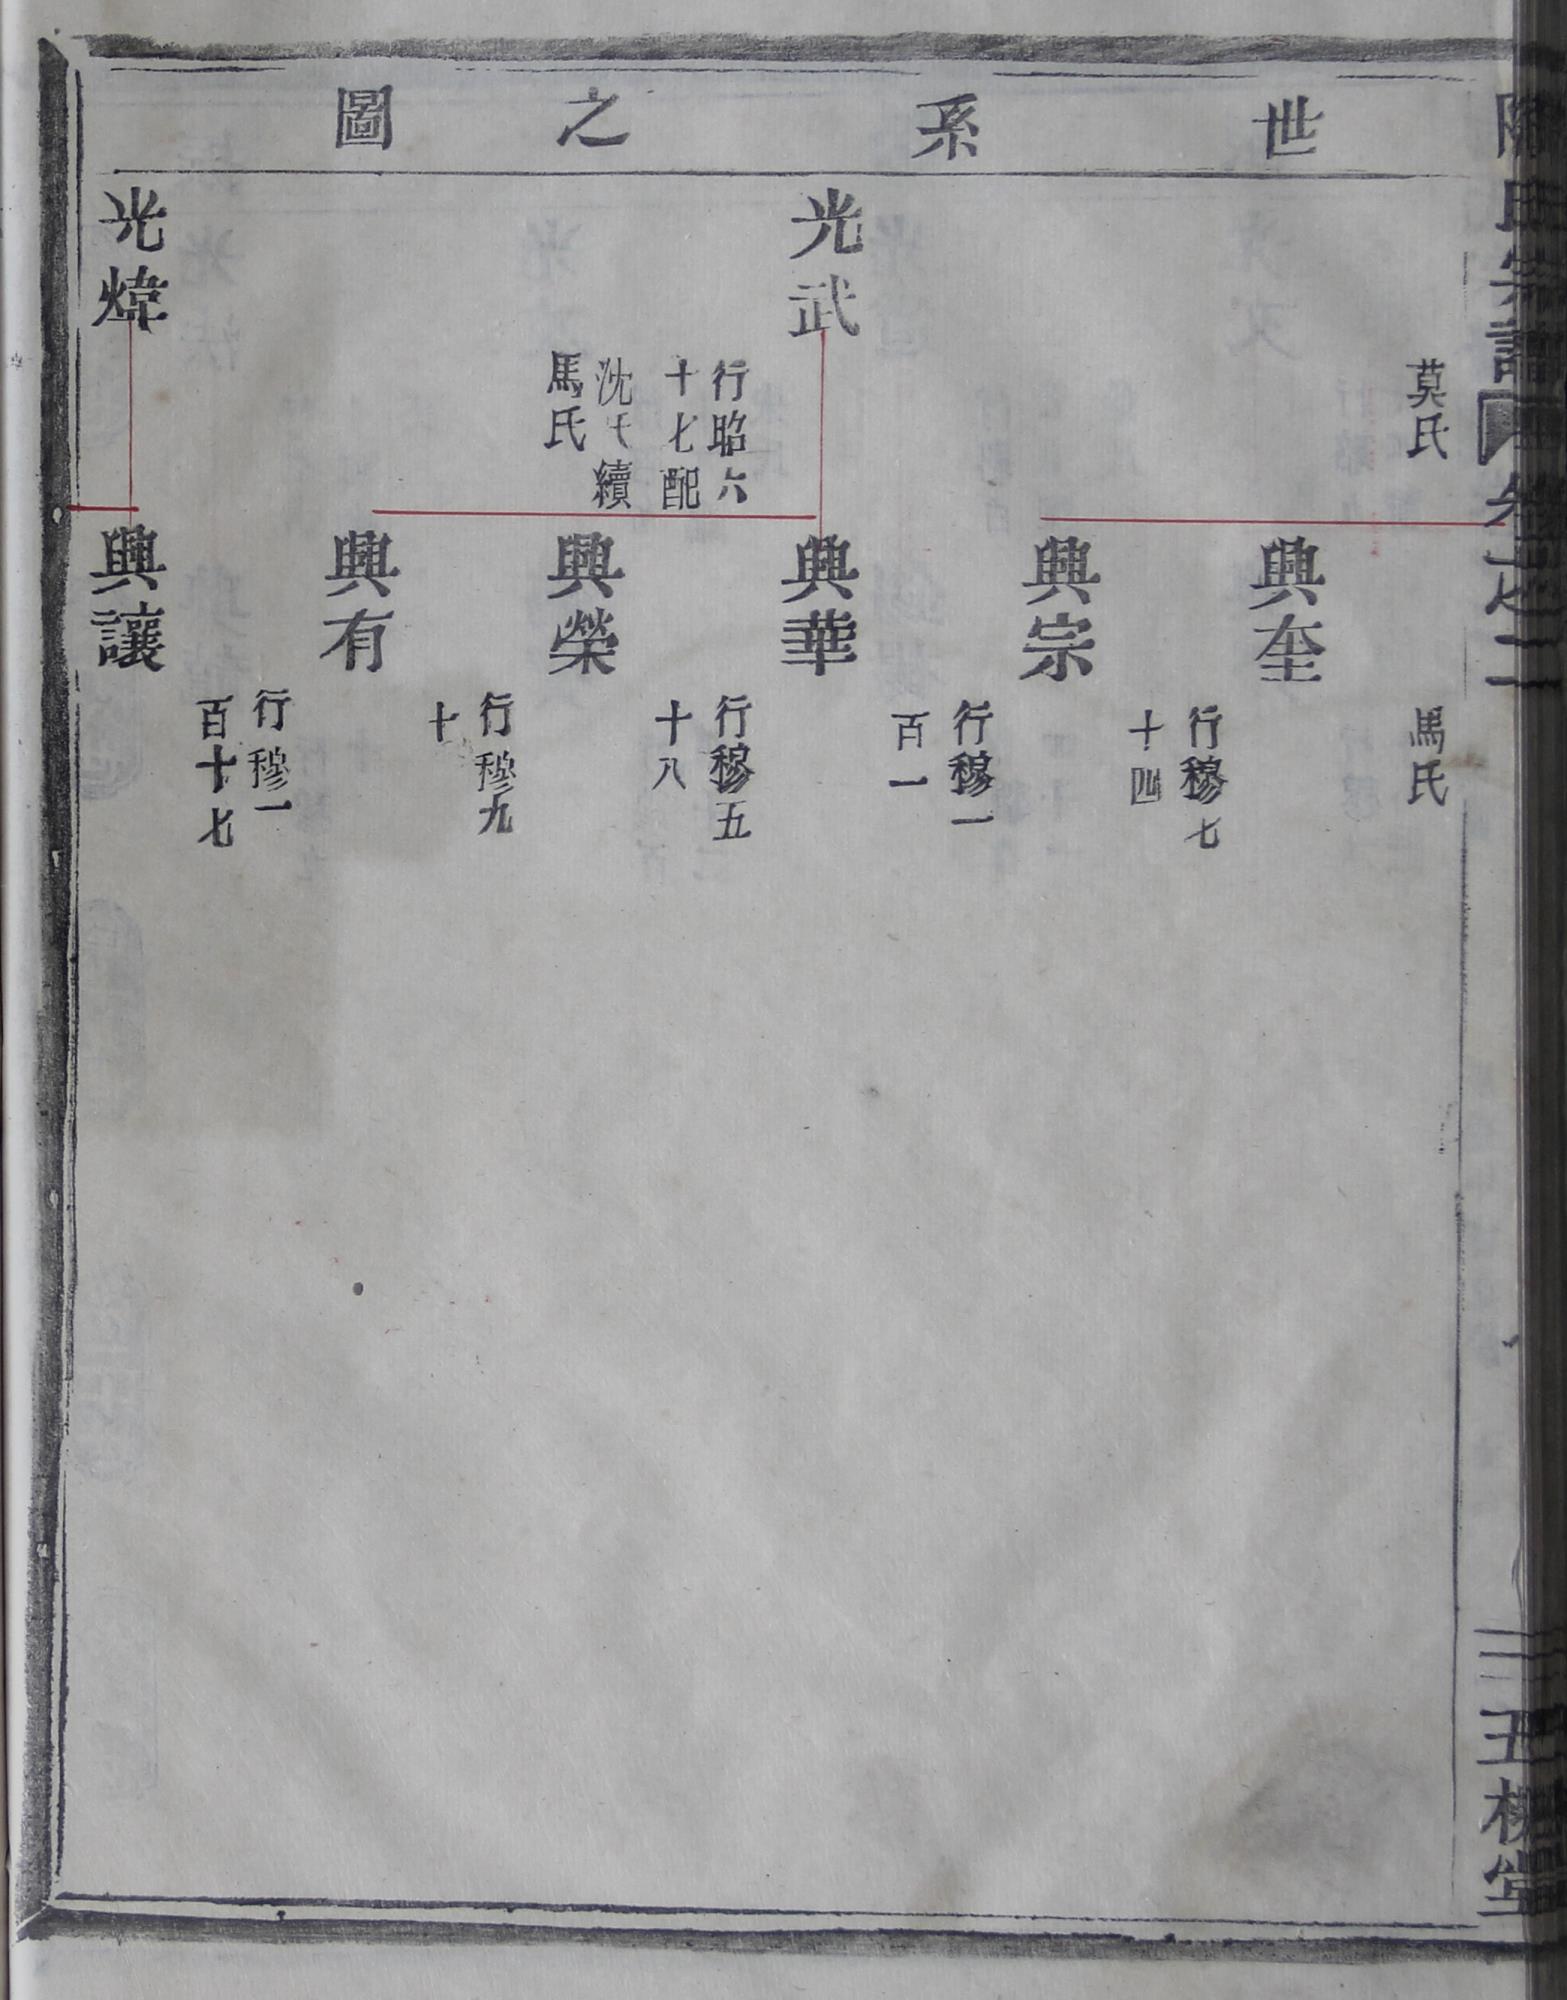 氏宗譜 卷之二
世系之圖
莫氏
馬氏
興奎
行穆七
十四
興宗
行穆一
百一
光武
行昭六
十七配
沈氏續
馬氏
興華
行穆五
十八
興榮
行穆九
十
興有
行穆一
百十七
光煒
興讓